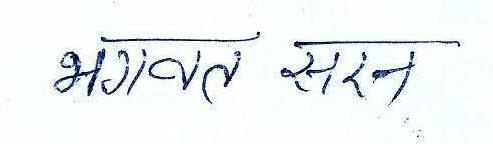 भगवत सरन